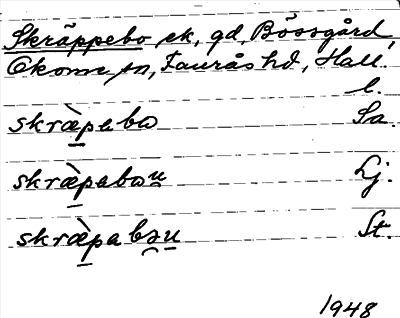 Skräppebo ek, gd, Bössgård,
Ekome sn, Faurås hd, Hall.
l.
skræ̀pabω Sa.
skræ̀pabωu Lj.
skræ̀pabɘu St.
1948